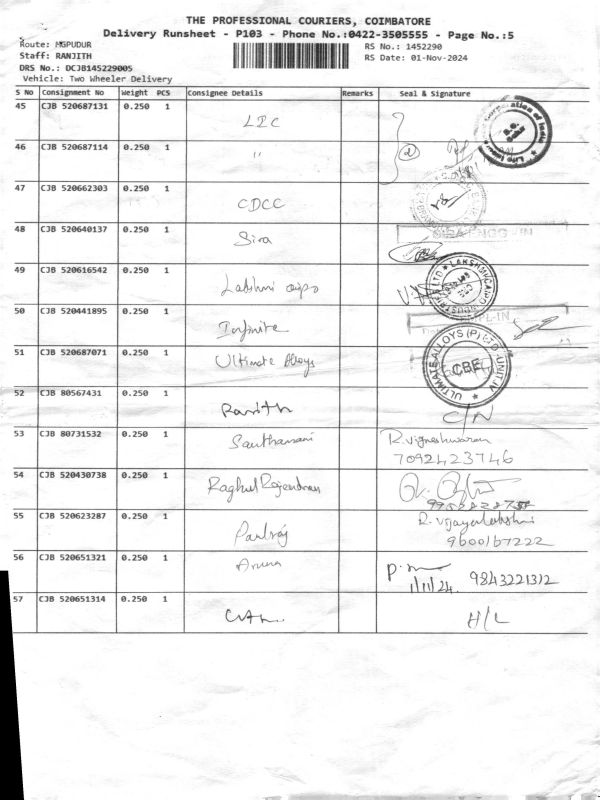 THE PROFESSIONAL COURIERS, COIMBATORE
Delivery Runsheet - P103 - Phone No.:0422-3505555 - Page No.:5
Route: MGPUDUR
RS No.: 1452290
Staff: RANJITH
RS Date: 01-Nov-2024
DRS No.: DCJB145229005
Vehicle: Two Wheeler Delivery
S No Consignment No Weight PCS Consignee Details Remarks Seal & Signature
45 CJB 520687131 0.250 1 LIC
46 CJB 520687114 0.250 1 " 2
47 CJB 520662303 0.250 1 CDCC
48 CJB 520640137 0.250 1 Sira
49 CJB 520616542 0.250 1 Lakshmi
50 CJB 520441895 0.250 1 Infinite
51 CJB 520687071 0.250 1 Ultimate Alloys
ULTIMATE ALLOYS (P) LTD-UNIT-IV
CBE
52 CJB 80567431 0.250 1 C/N
53 CJB 80731532 0.250 1 R.vigneshwaran
7092423746
54 CJB 520430738 0.250 1 Raghul Rajendran
55 CJB 520623287 0.250 1 Paulraj R. vijayalakshmi
9600167222
56 CJB 520651321 0.250 1 Aruna
1/11/24. 9843221312
57 CJB 520651314 0.250 1 H/L